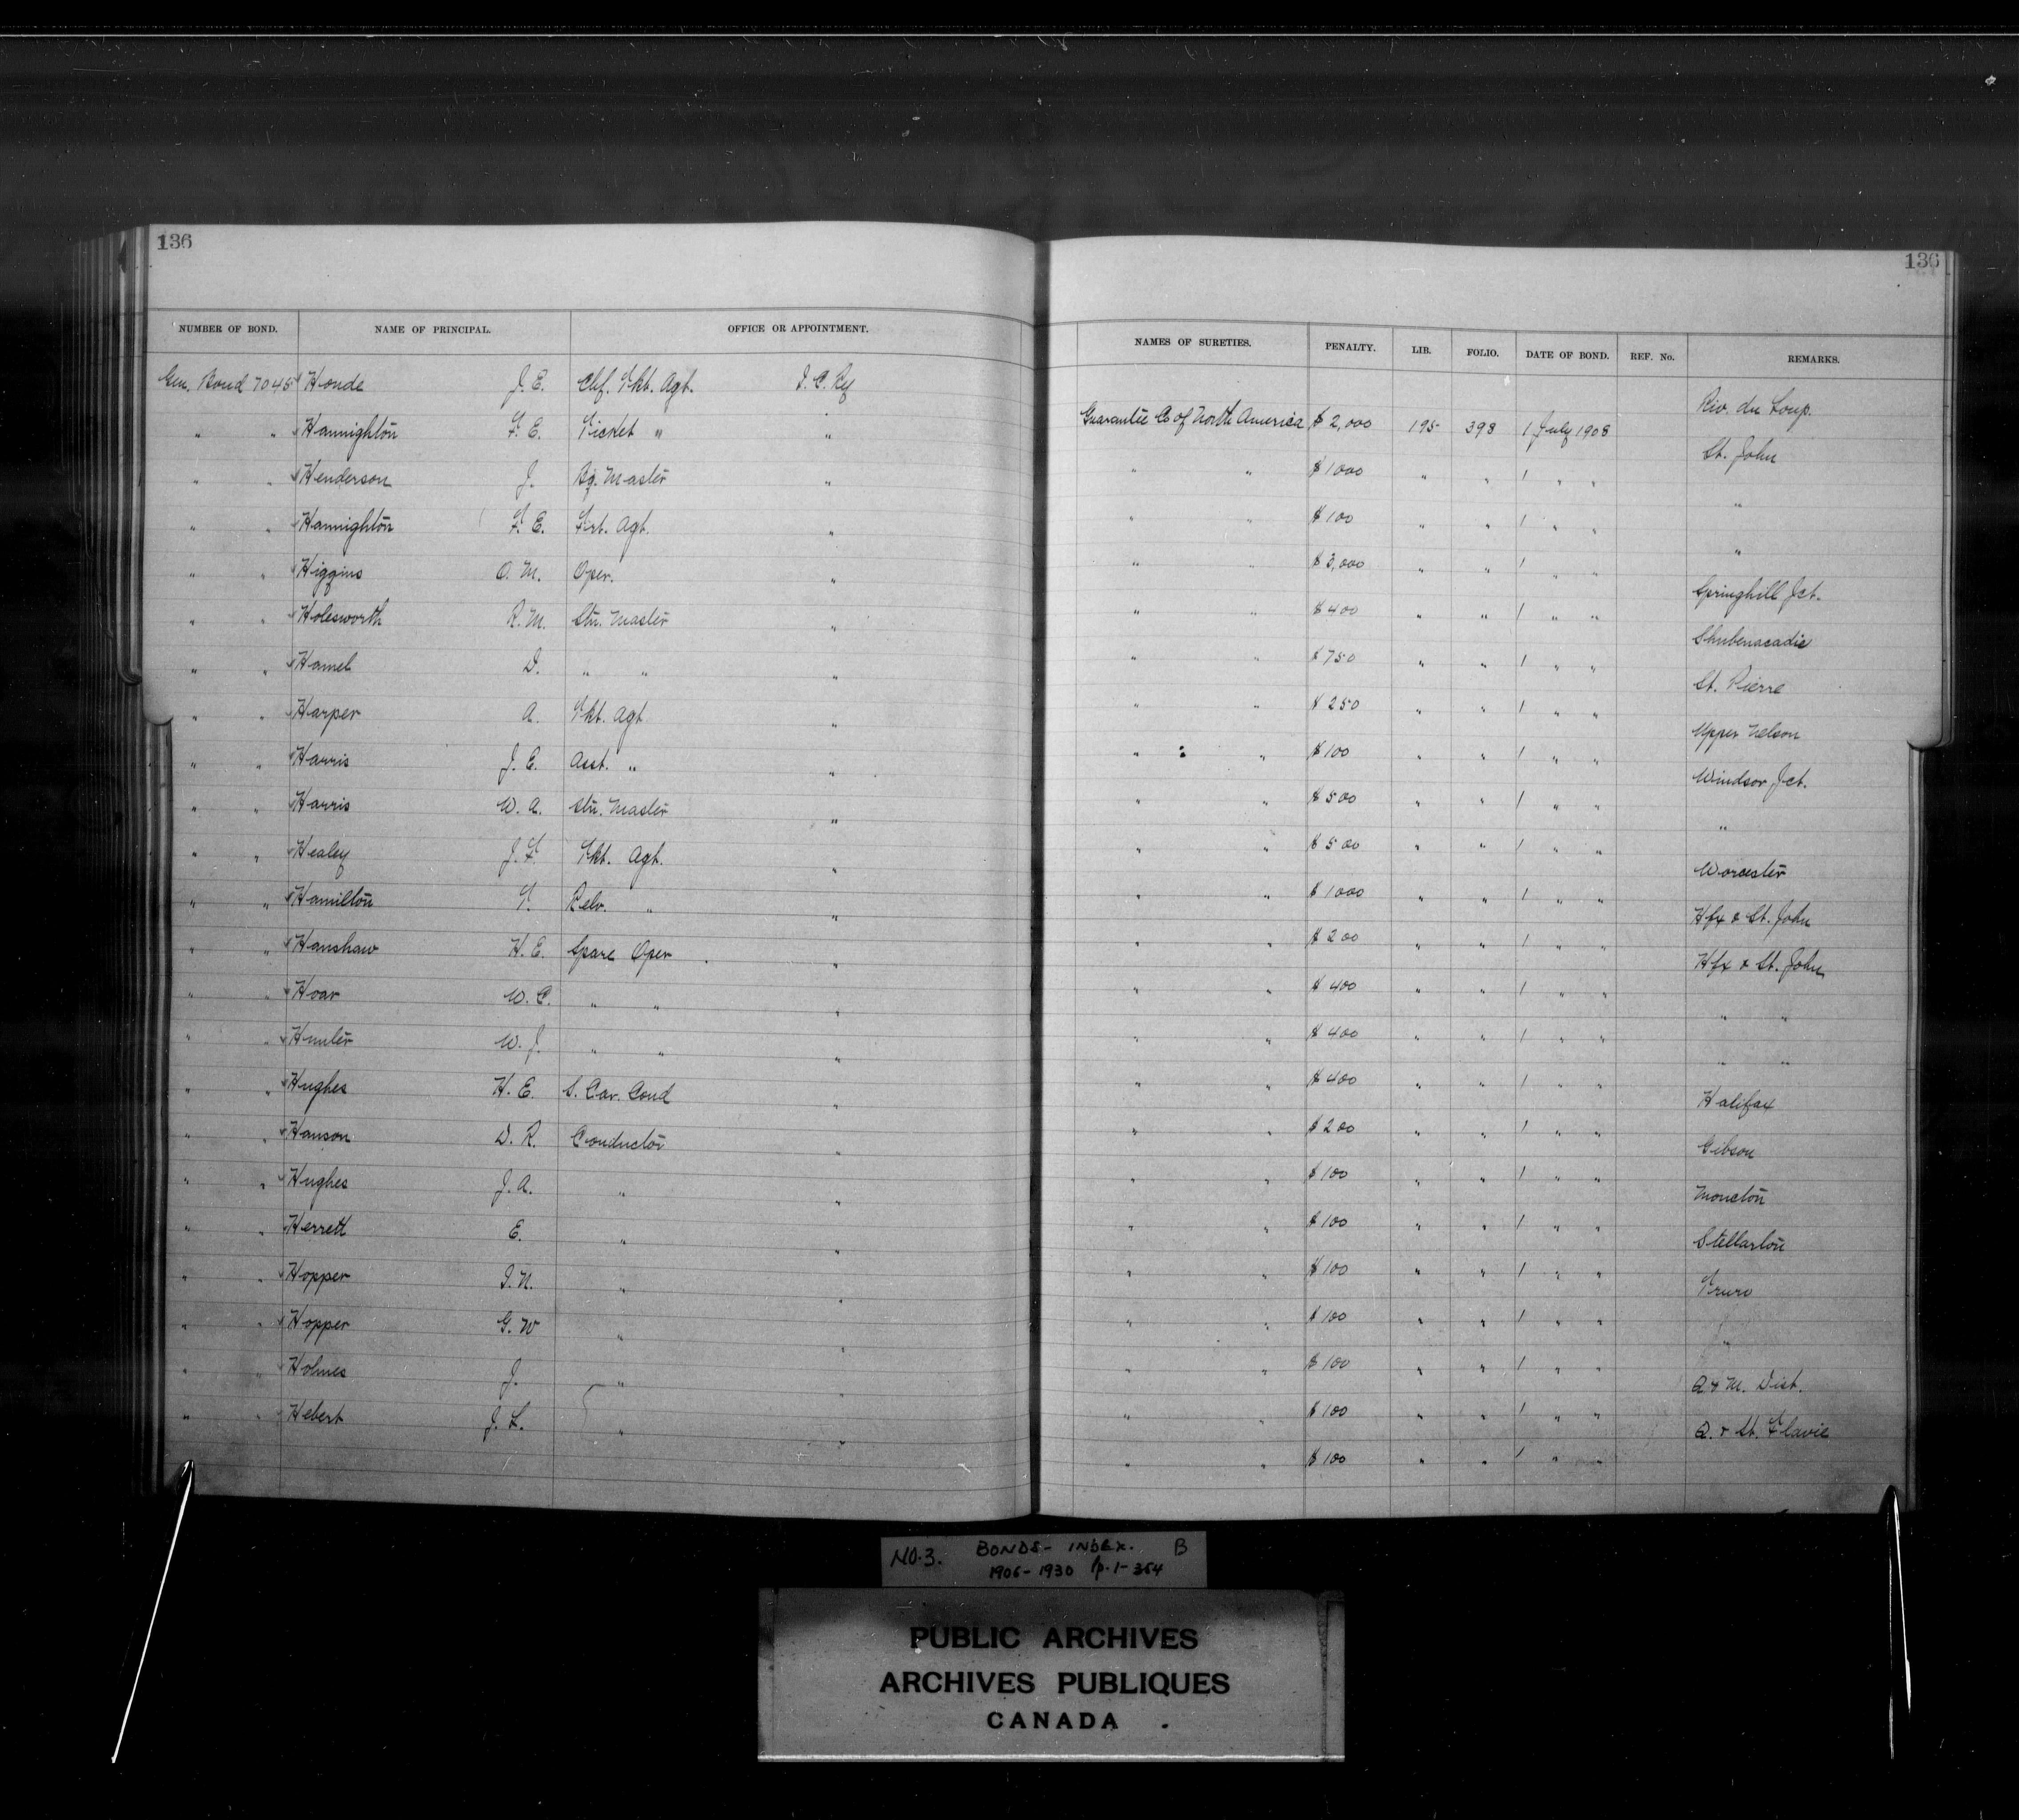 136
136
NUMBER OF BOND. NAME OF PRINCIPAL. OFFICE OR APPOINTMENT. NAMES OF SURETIES. PENALTY. LIB. FOLIO. DATE OF BOND. REF. No. REMARKS.
Gen. Bond 7045 Houde J. E. Chf. Tkt. Agt. I. C. Ry Guarantee Co of North America $ 2,000 195 398 1 July 1908 Riv. du Loup.
" " Hannighton F. E. Ticket " " " " $ 1000 " " 1 " " St. John
" " Henderson J. Bg. Master " " " $ 100 " " 1 " " "
" " Hannighton F. E. Frt. Agt. " " " $ 3,000 " " 1 " " "
" " Higgins O. M. Oper. " " " $ 400 " " 1 " " Springhill Jct.
" " Holesworth R. M. Stn. Master " " " $ 750 " " 1 " " Shubenacadie
" " Hamel D. " " " " " $ 250 " " 1 " " St. Pierre
" " Harper A. Tkt. Agt " " " $ 100 " " 1 " " Upper Nelson
" " Harris J. E. Asst. " " " " $ 500 " " 1 " " Windsor Jct.
" " Harris W. A. Stn. Master " " " $ 500 " " 1 " " "
" " Healey J. F. Tkt. Agt. " " " $ 1000 " " 1 " " Worcester
" " Hamilton T. Relv. " " " " $ 200 " " 1 " " Hfx & St. John
" " Hanshaw H. E. Spare Oper " " " $ 400 " " 1 " " Hfx & St. John
" " Hoar W. C. " " " " " $ 400 " " 1 " " " "
" " Hunter W. J. " " " " " $ 400 " " 1 " " " "
" " Hughes H. E. S. Car. Cond " " " $ 200 " " 1 " " Halifax
" " Hanson D. R. Conductor " " " $ 100 " " 1 " " Gibson
" " Hughes J. A. " " " " $ 100 " " 1 " " Moncton
" " Herrett E. " " " " $ 100 " " 1 " " Stellarton
" " Hopper I. N. " " " " $ 100 " " 1 " " Truro
" " Hopper G. W " " " " $ 100 " " 1 " " "
" " Holmes J. " " " " $ 100 " " 1 " " Q & M. Dist.
" " Hebert J. L. " " " " $ 100 " " 1 " " Q. & St. Flavie
NO. 3. BONDS - INDEX. B
1906 - 1930 p. 1 - 354
PUBLIC ARCHIVES
ARCHIVES PUBLIQUES
CANADA